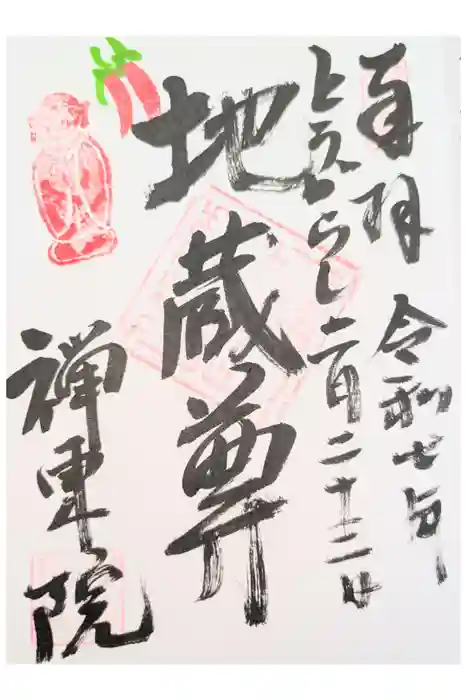 奉拝 令和七年
とうがらし 二月二十三日
地蔵尊
禅東院